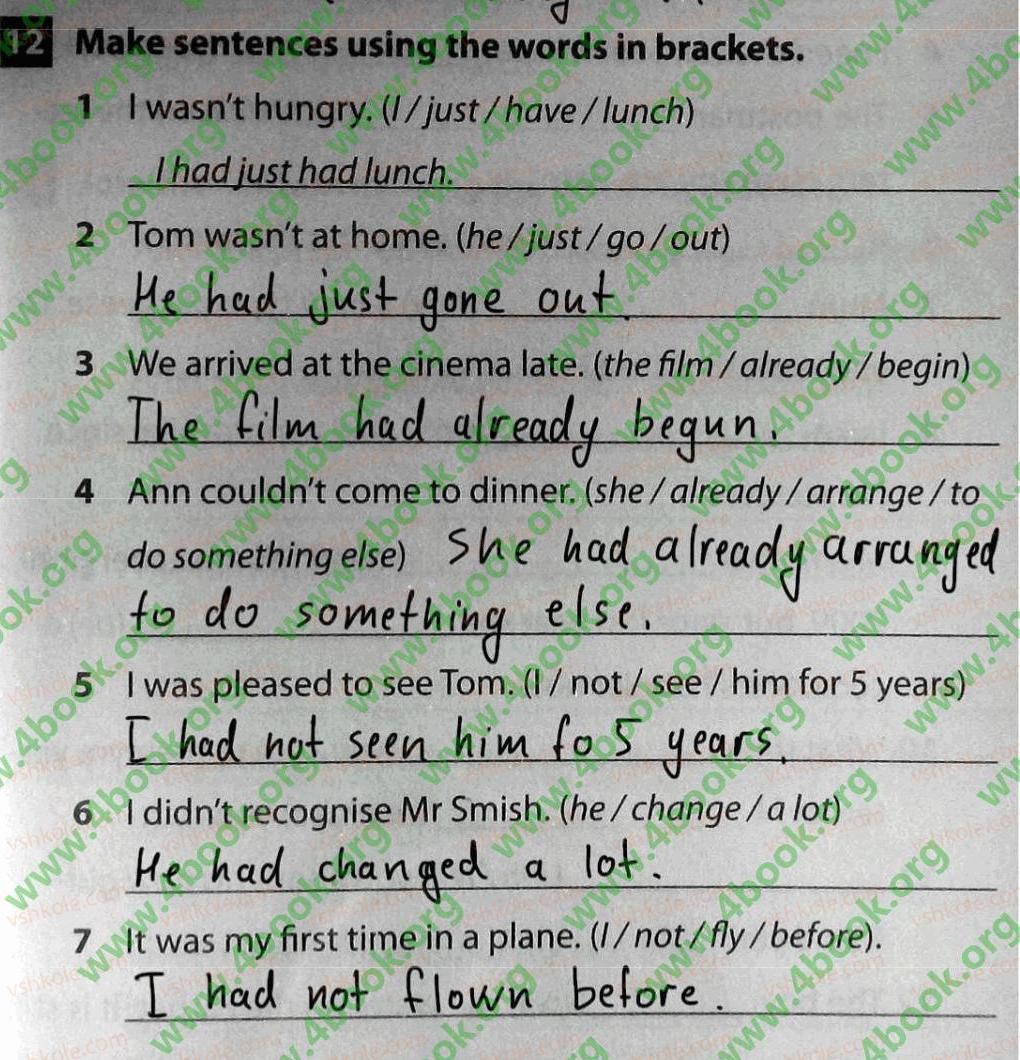 12 Make sentences using the words in brackets.
1 I wasn't hungry. (I / just / have / lunch)
I had just had lunch.
2 Tom wasn't at home. (he / just / go / out)
He had just gone out.
3 We arrived at the cinema late. (the film / already / begin)
The film had already begun.
4 Ann couldn't come to dinner. (she / already / arrange / to
do something else) She had already arranged
to do something else.
5 I was pleased to see Tom. (I / not / see / him for 5 years)
I had not seen him fo 5 years.
6 I didn't recognise Mr Smish. (he / change / a lot)
He had changed a lot.
7 It was my first time in a plane. (I / not / fly / before).
I had not flown before.
www.4book.org
vshkole.com